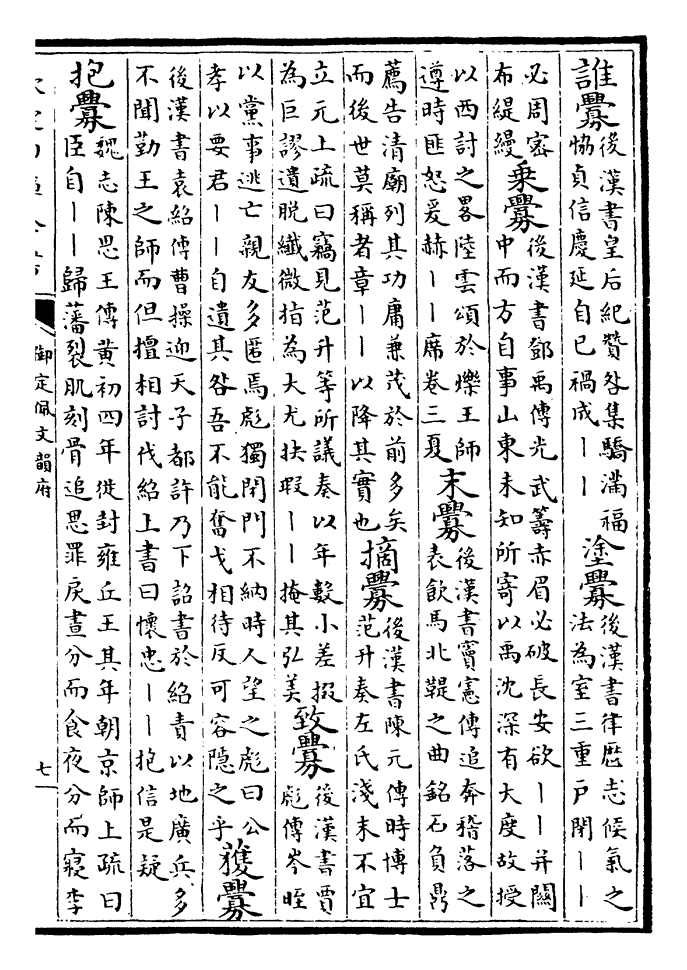 誰釁
後漢書皇后紀贊咎集驕滿福
恊貞信慶延自已禍成丨丨
塗釁
後漢書律厯志候氣之
法為室三重戶閉丨丨
必周宻
布緹縵
乗釁
後漢書鄧禹傳光武籌赤眉必破長安欲丨丨并關
中而方自事山東未知所寄以禹沈深有大度故授
以西討之畧陸雲頌於爍王師
遵時匪恕爰赫丨丨席卷三夏
末釁
後漢書竇憲傳追奔稽落之
表飲馬北鞮之曲銘石負鼎
薦告清廟列其功庸兼茂於前多矣
而後世莫稱者章丨丨以降其實也
摘釁
後漢書陳元傳時博士
范升奏左氏淺末不宜
立元上疏曰竊見范升等所議奏以年數小差掇
為巨謬遺脱纎微指為大尤抉瑕丨丨掩其弘美
致釁
後漢書賈
彪傳岑晊
以黨事逃亡親友多匿焉彪獨閉門不納時人望之彪曰公
孝以要君丨丨自遺其咎吾不能奮戈相待反可容隠之乎
獲釁
後漢書袁紹傳曹操迎天子都許乃下詔書於紹責以地廣兵多
不聞勤王之師而但擅相討伐紹上書曰懷忠丨丨抱信是疑
抱釁
魏志陳思王傳黃初四年徙封雍丘王其年朝京師上疏曰
臣自丨丨歸藩裂肌刻骨追思罪戾晝分而食夜分而寢李
御定佩文韻府
七